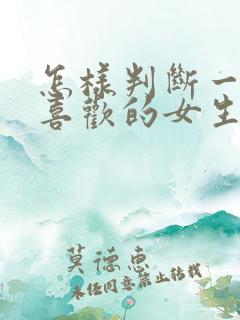 怎樣判斷一
喜歡的女生
莫德惠
未经同意禁止转载